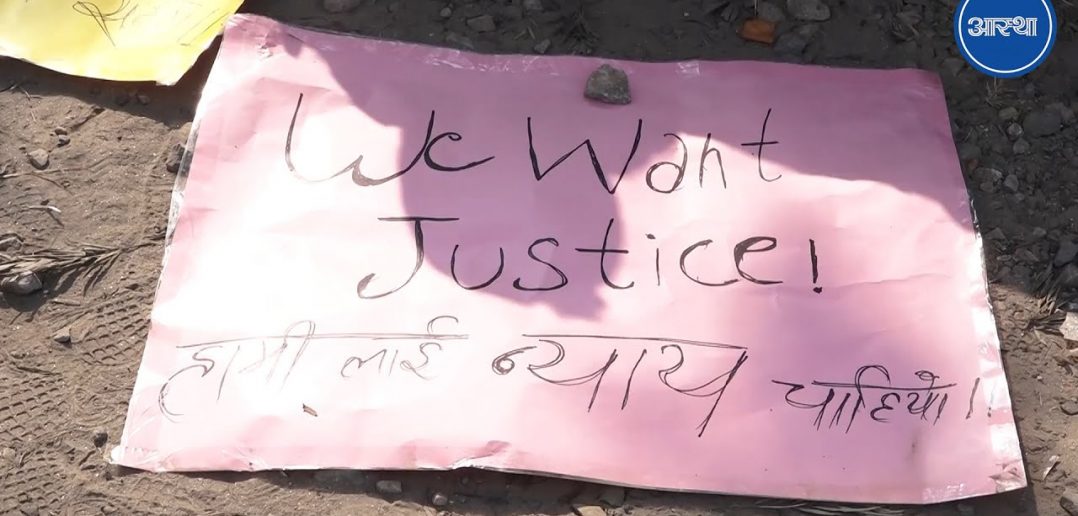 आस्था
We Want
Justice!
हामी लाई न्याय चाहियो।।